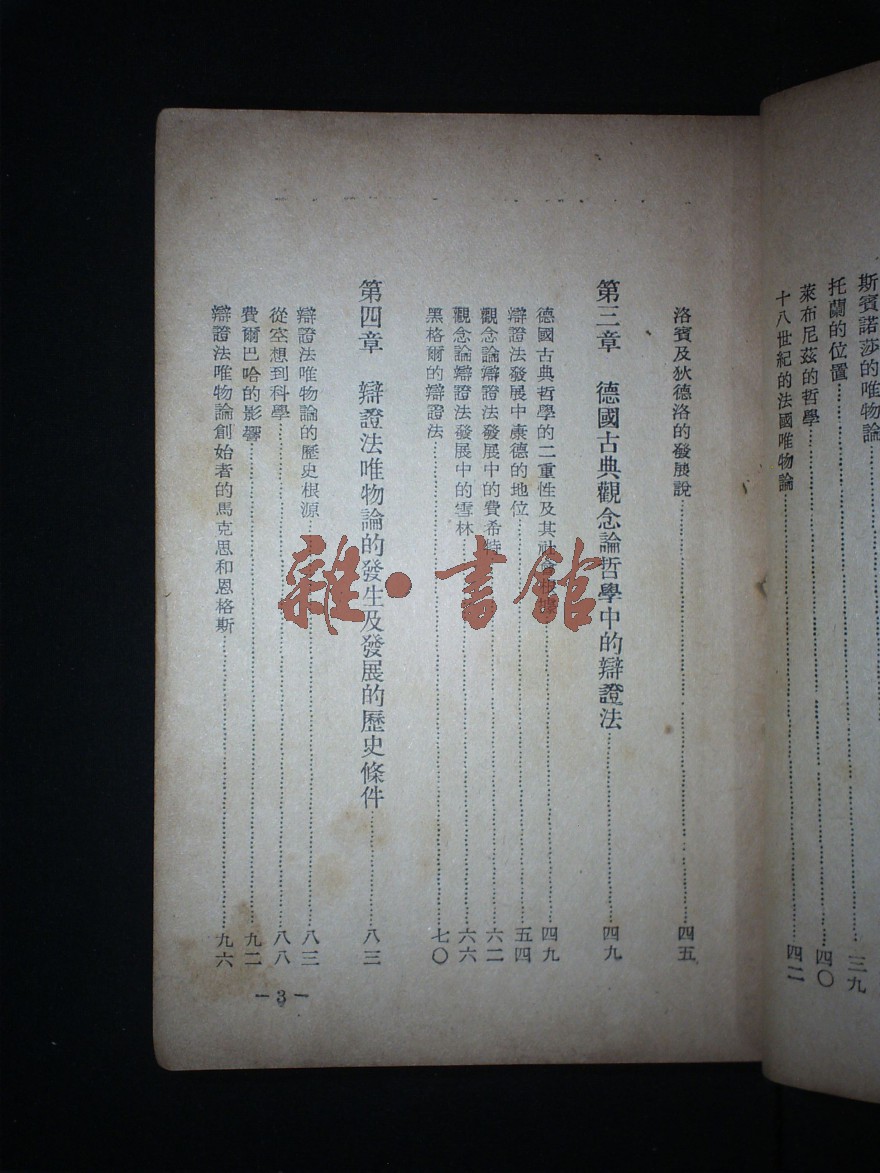 斯賓諾莎的唯物論……三九
托蘭的位置……四〇
萊布尼茲的哲學……
十八世紀的法國唯物論……四二
洛賓及狄德洛的發展說……四五
第三章　德國古典觀念論哲學中的辯證法……四九
德國古典哲學的二重性及其社會……四九
辯證法發展中康德的地位……五四
觀念論辯證法發展中的費希特……六二
觀念論辯證法發展中的雪林……六六
黑格爾的辯證法……七〇
第四章　辯證法唯物論的發生及發展的歷史條件……八三
辯證法唯物論的歷史根源……八三
從空想到科學……八八
費爾巴哈的影響……九二
辯證法唯物論創始者的馬克思和恩格斯……九六
—3—
雜·書館